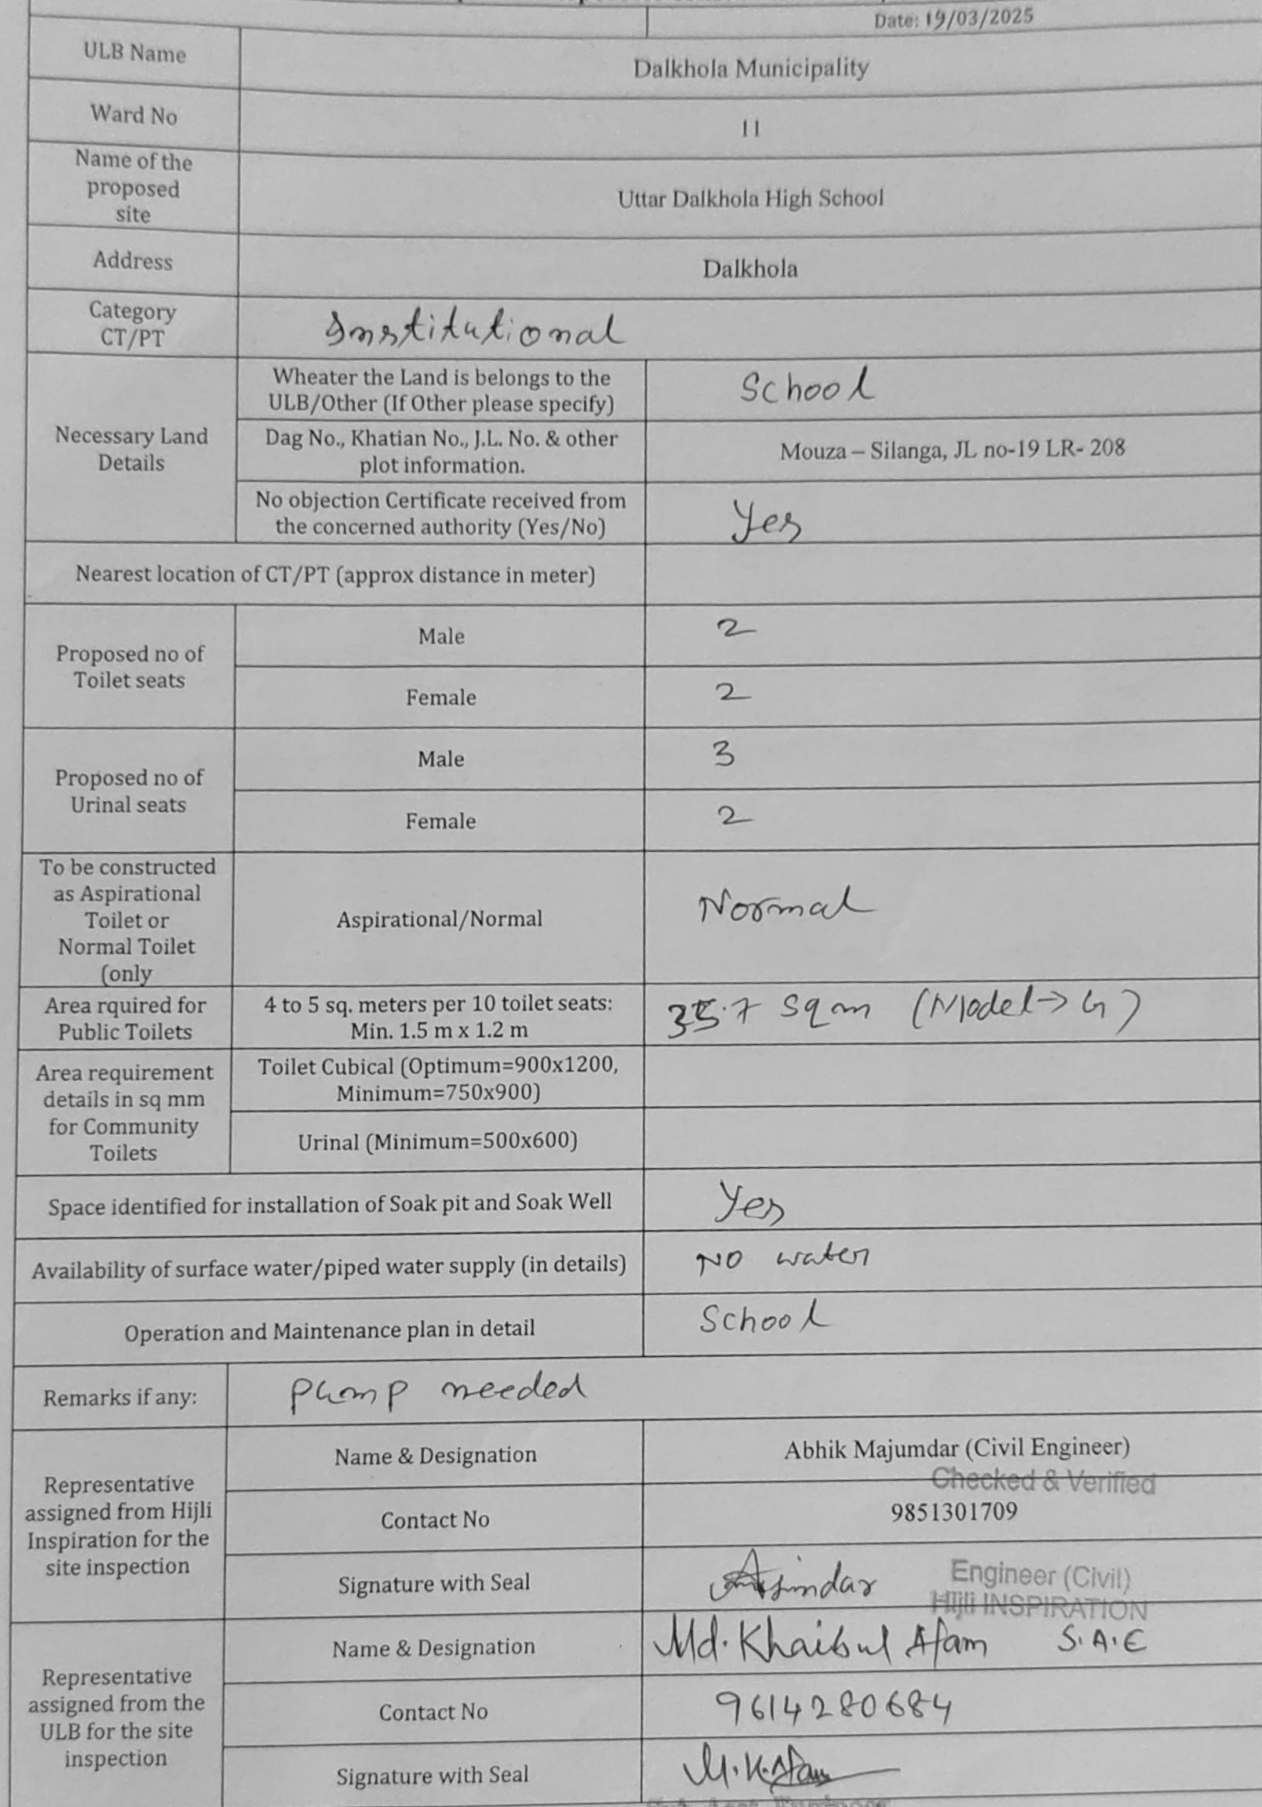 Date: 19/03/2025
ULB Name
Dalkhola Municipality
Ward No
11
Name of the
proposed
site
Uttar Dalkhola High School
Address
Dalkhola
Category
CT/PT
Institutional
Necessary Land
Details
Wheater the Land is belongs to the
ULB/Other (If Other please specify)
School
Dag No., Khatian No., J.L. No. & other
plot information.
Mouza – Silanga, JL no-19 LR- 208
No objection Certificate received from
the concerned authority (Yes/No)
Yes
Nearest location of CT/PT (approx distance in meter)
Proposed no of
Toilet seats
Male
2
Female
2
Proposed no of
Urinal seats
Male
3
Female
2
To be constructed
as Aspirational
Toilet or
Normal Toilet
(only
Aspirational/Normal
Normal
Area rquired for
Public Toilets
4 to 5 sq. meters per 10 toilet seats:
Min. 1.5 m x 1.2 m
35.7 sqm (Model→G)
Area requirement
details in sq mm
for Community
Toilets
Toilet Cubical (Optimum=900x1200,
Minimum=750x900)
Urinal (Minimum=500x600)
Space identified for installation of Soak pit and Soak Well
Yes
Availability of surface water/piped water supply (in details)
NO water
Operation and Maintenance plan in detail
School
Remarks if any:
Pump needed
Representative
assigned from Hijli
Inspiration for the
site inspection
Name & Designation
Abhik Majumdar (Civil Engineer)
Checked & Verified
Contact No
9851301709
Signature with Seal
Engineer (Civil)
Hijli INSPIRATION
Representative
assigned from the
ULB for the site
inspection
Name & Designation
Md. Khaibul Afam S.A.E
Contact No
9614280684
Signature with Seal